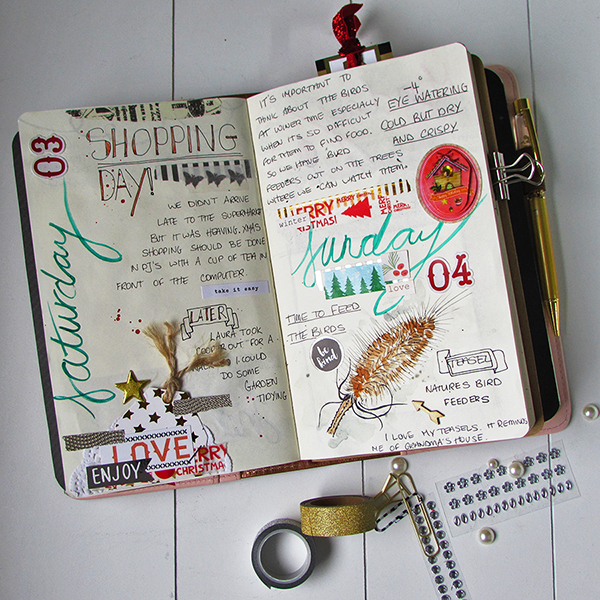 03
SHOPPING
DAY!
WE DIDN'T ARRIVE
LATE TO THE SUPERMARKET
BUT IT WAS HEAVING. XMAS
SHOPPING SHOULD BE DONE
IN PJ'S WITH A CUP OF TEA IN
FRONT OF THE COMPUTER.
take it easy
saturday
LATER
LAURA TOOK
OUT FOR A
I COULD
DO SOME
GARDEN
TIDYING
LOVE
ENJOY
MERRY
CHRISTMAS
IT'S IMPORTANT TO
THINK ABOUT THE BIRDS
AT WINTER TIME ESPECIALLY
WHEN IT'S SO DIFFICULT
FOR THEM TO FIND FOOD.
SO WE HAVE BIRD
FEEDERS OUT ON THE TREES
WHERE WE CAN WATCH THEM.
-4°
EYE WATERING
COLD BUT DRY
AND CRISPY
MERRY
CHRISTMAS!
winter
sunday
love
04
TIME TO FEED
THE BIRDS
be
kind
TEASEL
NATURES BIRD
FEEDERS
I LOVE MY TEASELS. IT REMINDS
ME OF GRANDMA'S HOUSE.